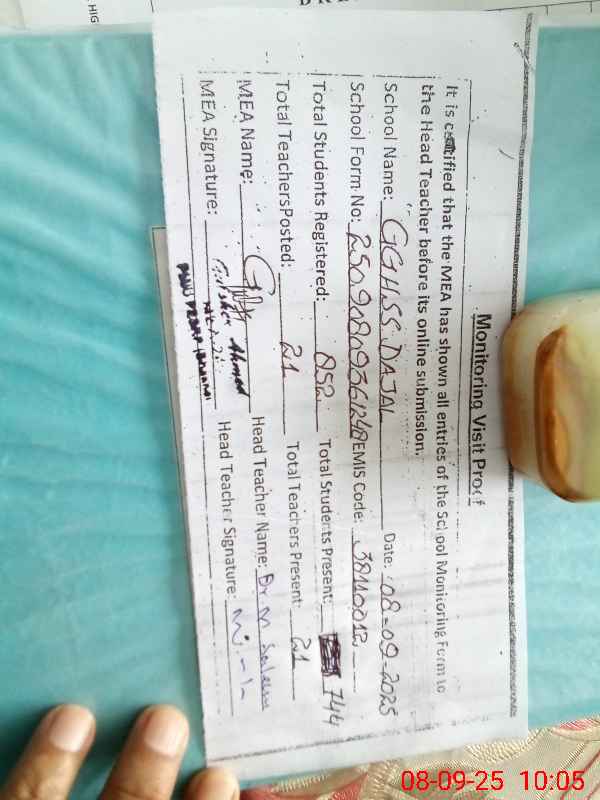 Monitoring Visit Proof
It is certified that the MEA has shown all entries of the School Monitoring Form to
the Head Teacher before its online submission.
School Name: GGHSS DAJAL Date: 08-09-2025
School Form No: EMIS Code: 38110012
Total Students Registered: 852 Total Students Present: 744
Total TeachersPosted: 21 Total Teachers Present: 21
MEA Name: Ahmed Head Teacher Name: Dr M Saleem
MEA Signature: Head Teacher Signature:
HIG
08-09-25 10:05